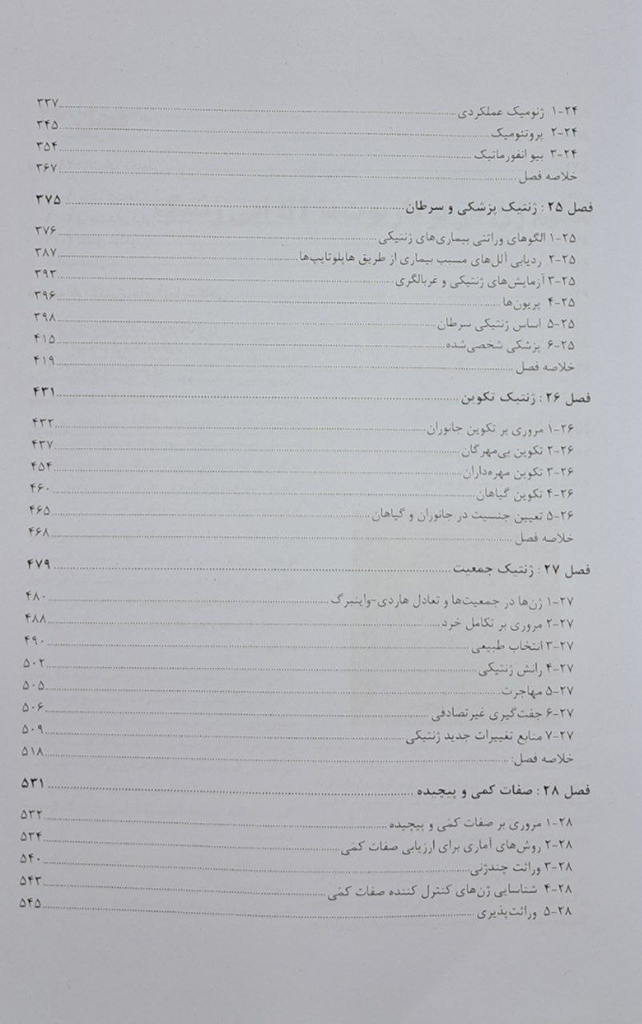 ۱-۲۴ ژنومیک عملکردی ۳۳۷
۲-۲۴ پروتئومیک ۳۴۵
۳-۲۴ بیو انفورماتیک ۳۵۴
خلاصه فصل ۳۶۷
فصل ۲۵ : ژنتیک پزشکی و سرطان ۳۷۵
۱-۲۵ الگوهای وراثتی بیماری‌های ژنتیکی ۳۷۶
۲-۲۵ ردیابی آلل‌های مسبب بیماری از طریق هاپلوتایپ‌ها ۳۸۷
۳-۲۵ آزمایش‌های ژنتیکی و غربالگری ۳۹۳
۴-۲۵ پریون‌ها ۳۹۶
۵-۲۵ اساس ژنتیکی سرطان ۳۹۸
۶-۲۵ پزشکی شخصی‌شده ۴۱۵
خلاصه فصل ۴۱۹
فصل ۲۶ : ژنتیک تکوین ۴۳۱
۱-۲۶ مروری بر تکوین جانوران ۴۳۲
۲-۲۶ تکوین بی‌مهرگان ۴۳۷
۳-۲۶ تکوین مهره‌داران ۴۵۴
۴-۲۶ تکوین گیاهان ۴۶۰
۵-۲۶ تعیین جنسیت در جانوران و گیاهان ۴۶۵
خلاصه فصل ۴۶۸
فصل ۲۷ : ژنتیک جمعیت ۴۷۹
۱-۲۷ ژن‌ها در جمعیت‌ها و تعادل هاردی-واینبرگ ۴۸۰
۲-۲۷ مروری بر تکامل خرد ۴۸۸
۳-۲۷ انتخاب طبیعی ۴۹۰
۴-۲۷ رانش ژنتیکی ۵۰۲
۵-۲۷ مهاجرت ۵۰۵
۶-۲۷ جفت‌گیری غیرتصادفی ۵۰۶
۷-۲۷ منابع تغییرات جدید ژنتیکی ۵۰۹
خلاصه فصل: ۵۱۸
فصل ۲۸ : صفات کمی و پیچیده ۵۳۱
۱-۲۸ مروری بر صفات کمّی و پیچیده ۵۳۲
۲-۲۸ روش‌های آماری برای ارزیابی صفات کمّی ۵۳۴
۳-۲۸ وراثت چندژنی ۵۴۰
۴-۲۸ شناسایی ژن‌های کنترل کننده صفات کمّی ۵۴۳
۵-۲۸ وراثت‌پذیری ۵۴۵